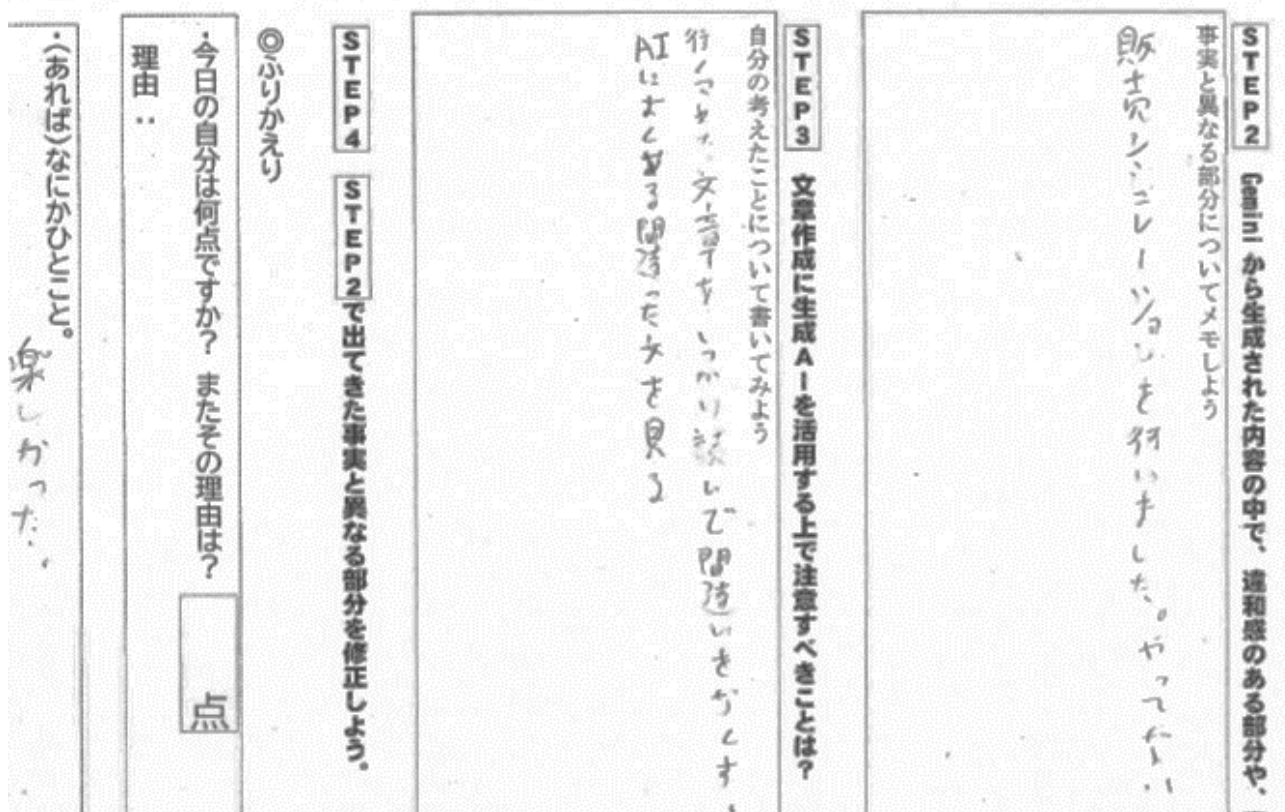 STEP2 Geminiから生成された内容の中で、違和感のある部分や、
事実と異なる部分についてメモしよう
販売シミュレーションを行いました。やってない
STEP3 文章作成に生成AIを活用する上で注意すべきことは?
自分の考えたことについて書いてみよう
文章をしっかり読んで間違いをなくす
AIによくある間違った文を見る
STEP4 STEP2で出てきた事実と異なる部分を修正しよう。
◎ふりかえり
・今日の自分は何点ですか? またその理由は?
点
理由:
・(あれば)なにかひとこと。
楽しかった。